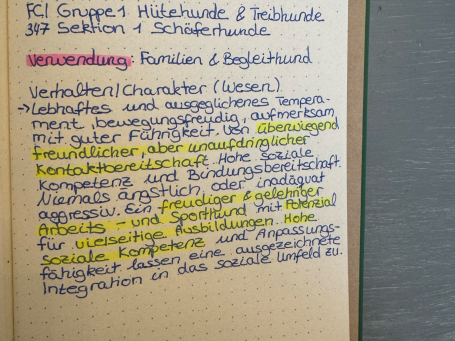 FCI Gruppe 1 Hütehunde & Treibhunde
347 Sektion 1 Schäferhunde
Verwendung: Familien & Begleithund
Verhalten/Charakter (Wesen)
→ Lebhaftes und ausgeglichenes Tempera-
ment, bewegungsfreudig, aufmerksam
mit guter Führigkeit. Von überwiegend
freundlicher, aber unaufdringlicher
Kontaktbereitschaft. Hohe soziale
Kompetenz und Bindungsbereitschaft.
Niemals ängstlich oder inadäquat
aggressiv. Ein freudiger & gelehriger
Arbeits- und Sporthund mit Potenzial
für vielseitige Ausbildungen. Hohe
soziale Kompetenz und Anpassungs-
fähigkeit lassen eine ausgezeichnete
Integration in das soziale Umfeld zu.